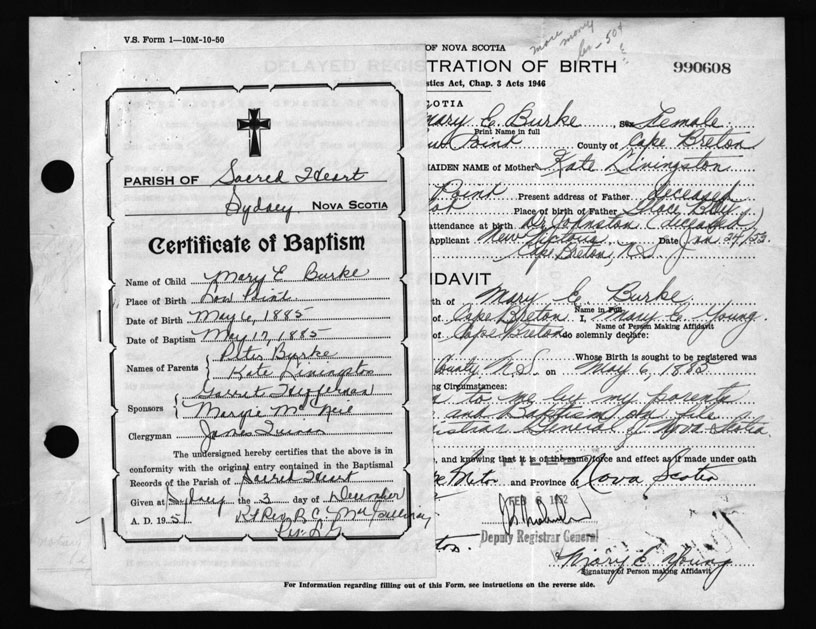 V.S. Form 1—10M-10-50
PARISH OF Sacred Heart
Sydney, NOVA SCOTIA
Certificate of Baptism
Name of Child Mary E Burke
Place of Birth Low Point
Date of Birth May 6, 1885
Date of Baptism May 17, 1885
Names of Parents { Peter Burke
Kate Livingston
Sponsors { Garret Heffernan
Margie McNeil
Clergyman James Quinan
The undersigned hereby certifies that the above is in
conformity with the original entry contained in the Baptismal
Records of the Parish of Sacred Heart
Given at Sydney the 3 day of December
A. D. 1951 Rt Rev. R. C.
more money
OF NOVA SCOTIA
TRATION OF BIRTH
990608
stics Act, Chap. 3 Acts 1946
COTIA
Mary E. Burke, Sex Female
Print Name in full
Point County of Cape Breton
MAIDEN NAME of Mother Kate Livingston
Point Present address of Father deceased
Place of Birth of Father Glace Bay
attendance at birth Dr Johnston (deceased)
Applicant New Victoria Date Jan 24/52
Cape Breton, N.S.
IDAVIT
th of Mary E. Burke
Name in Full
of Cape Breton I, Mary E. Young
Name of Person Making Affidavit
of Cape Breton do solemnly declare:
Whose Birth is sought to be registered was
County N.S. on May 6, 1885
ng Circumstances:
to me by my parents
and Baptism on file
istrar General of Nova Scotia
e, and knowing that it is of the same force and effect as if made under oath
FILED
Breton and Province of Nova Scotia
FEB 1952
Deputy Registrar General
Mary E. Young
Signature of Person making Affidavit
For Information regarding filling out of this Form, see instructions on the reverse side.